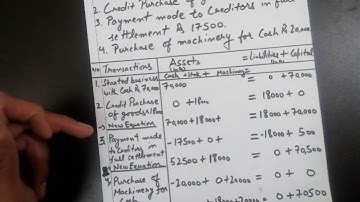 2. Credit Purchase of
3. Payment made to Creditors in full
settlement Rs 17500.
4. Purchase of machinery for Cash Rs 20,000
Transactions Assets = Liabilities + Capital
Cash + Machinery =
1. Started business with Cash Rs 70,000 70,000 = 0 + 70,000
2. Credit Purchase of goods 0 + = 18000 + 0
New Equation 70,000 + 18000 + = 18,000 + 70,000
3. Payment made to Creditors in full settlement -17500 + 0 + = -18000 + 500
New Equation 52500 + 18000 = 0 + 70,500
4. Purchase of Machinery for Cash -20,000 + 0 + 20000 = 0 + 0
= 0 + 70500